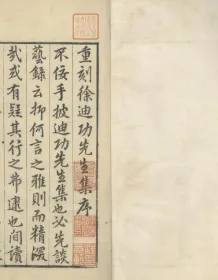 重刻徐迪功先生集序
不佞手披迪功先生集也必先談
藝錄云抑何言之雅則而精深
哉或有疑其行之弗逮也間讀